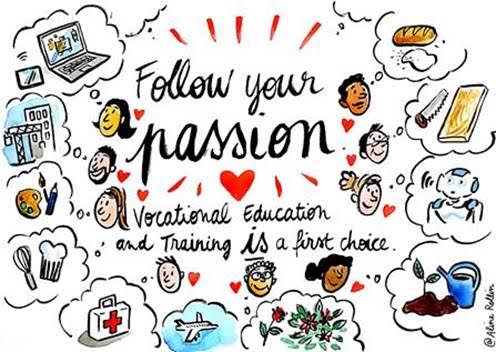 Follow your
passion
Vocational Education
and Training is a first choice.
@Aline Rollin